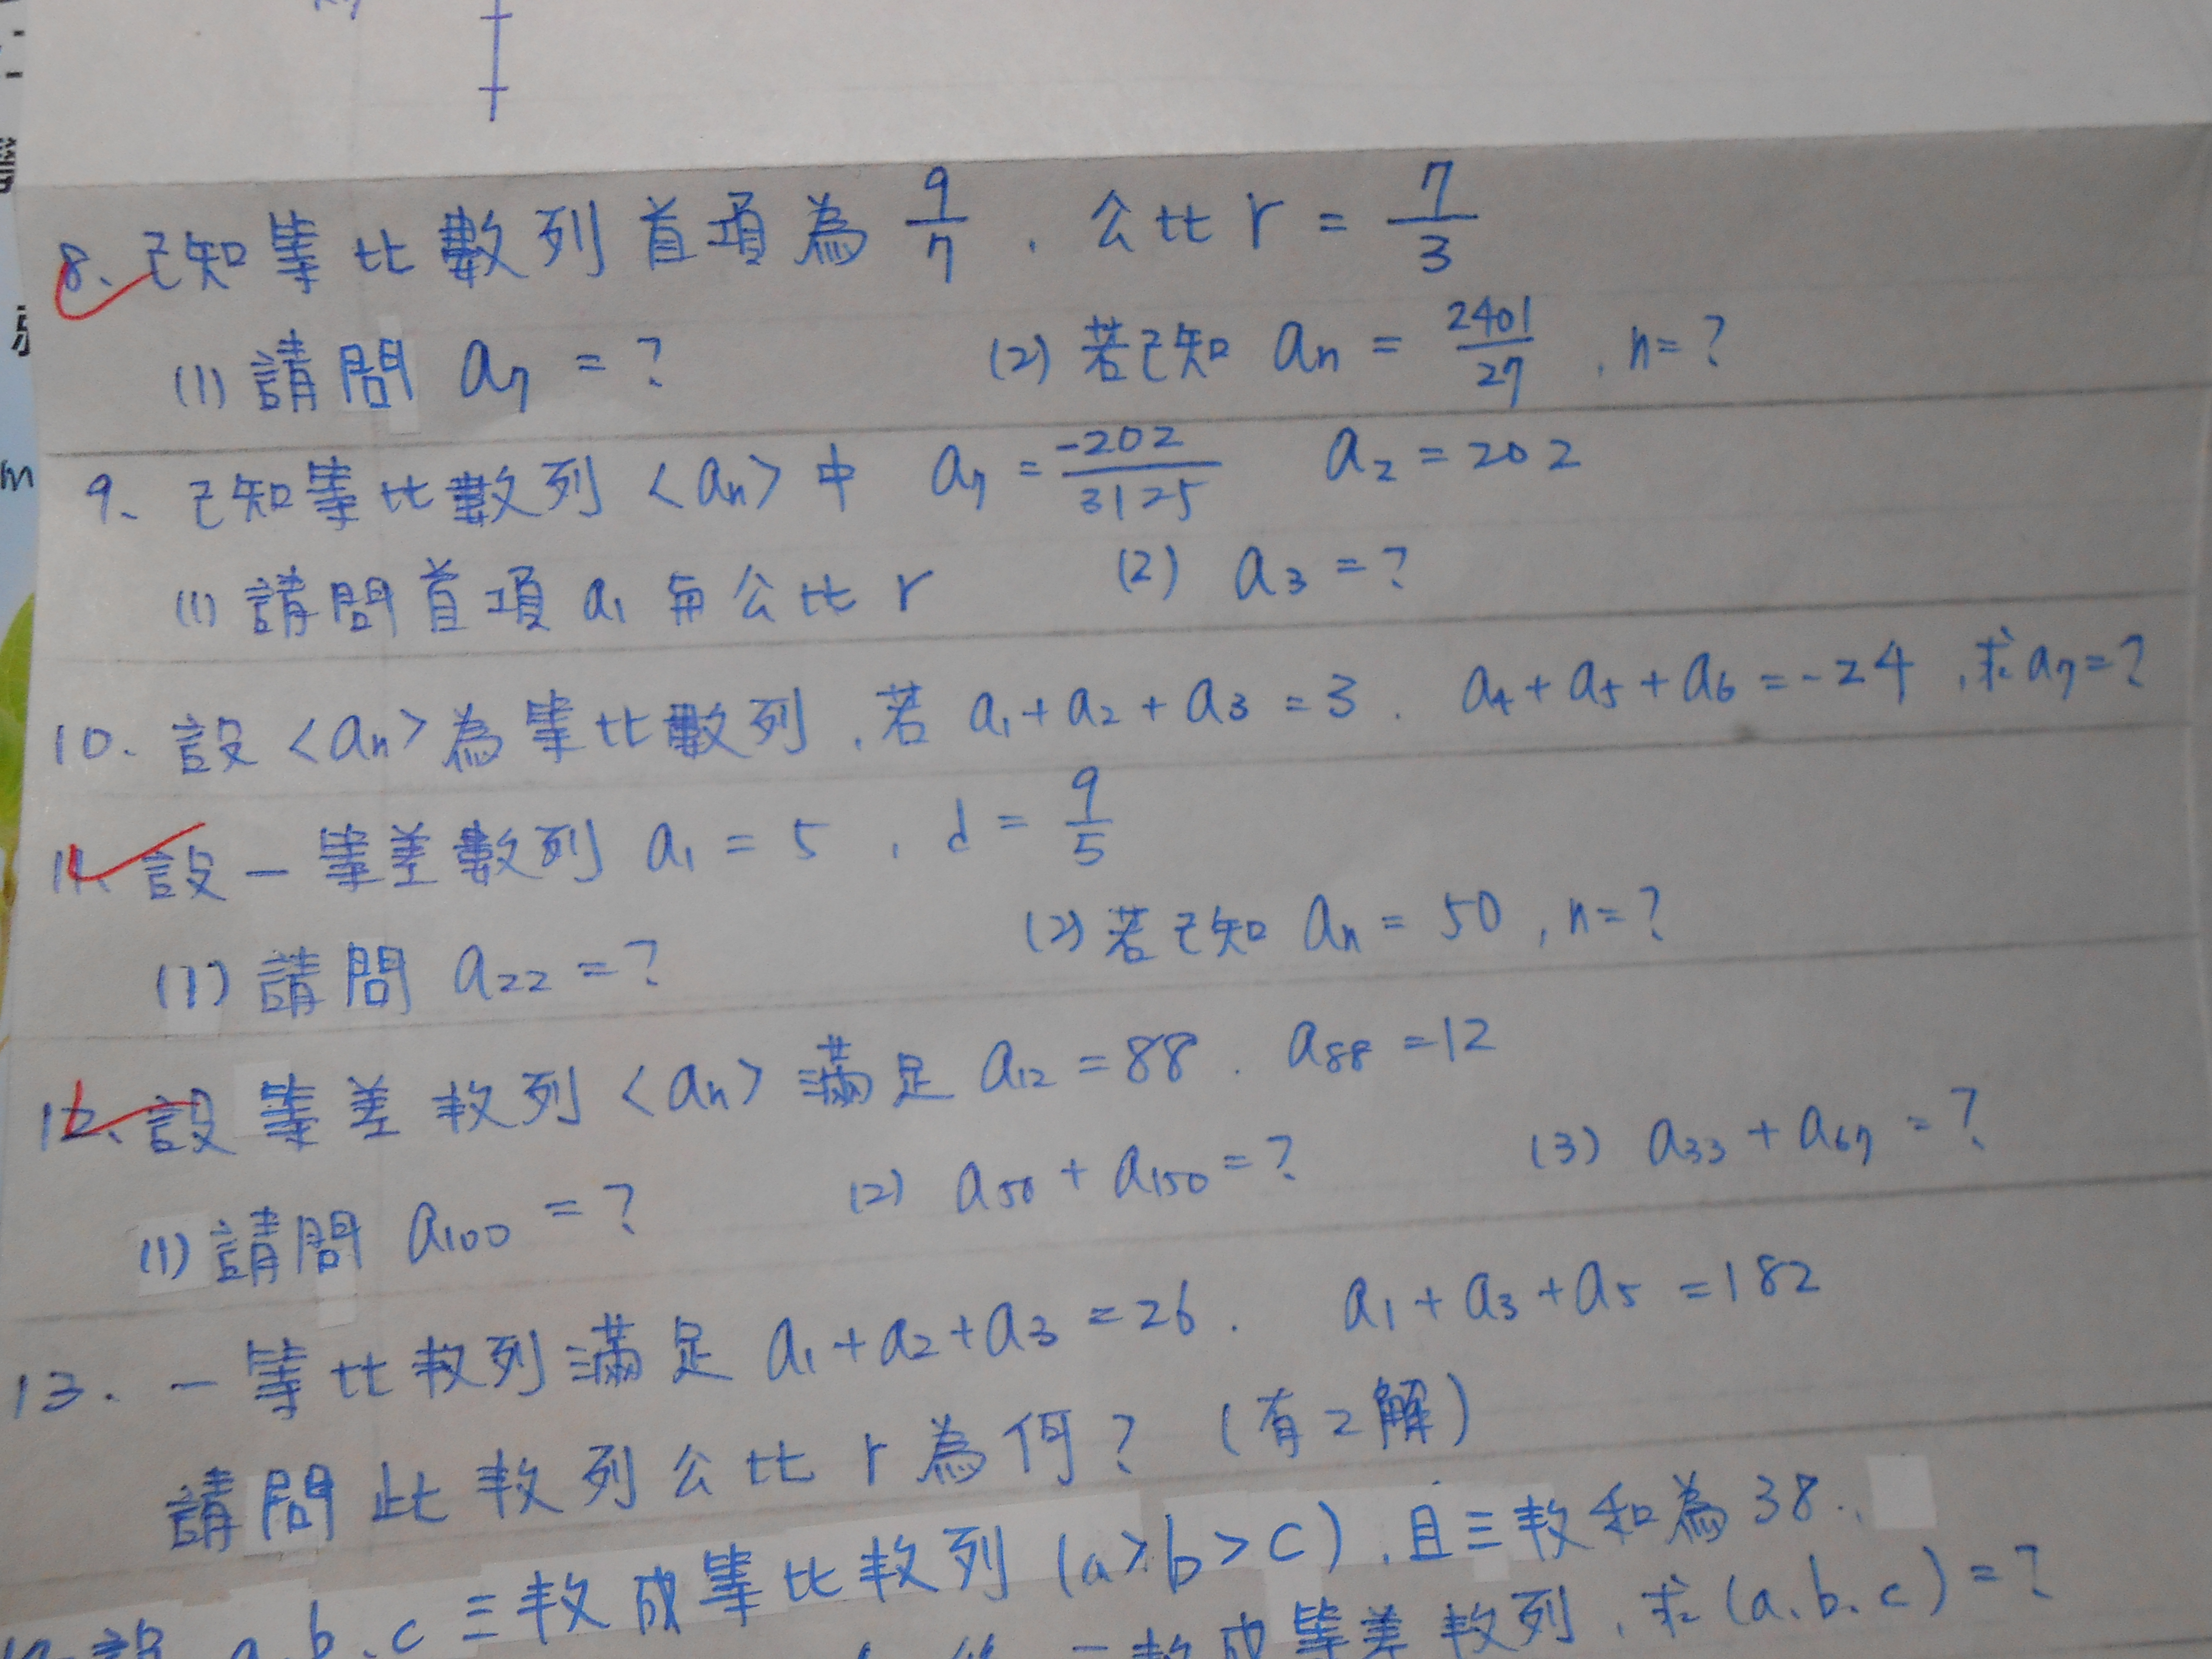 8、已知等比數列首項為 9/7 , 公比 r = 7/3
(1) 請問 a7 = ? (2) 若已知 an = 2401/27 , n = ?
9、已知等比數列 <an> 中 a7 = -202/3125 a2 = 202
(1) 請問首項 a1 與公比 r (2) a3 = ?
10、設 <an> 為等比數列, 若 a1 + a2 + a3 = 3 . a4 + a5 + a6 = -24 , 求 a7 = ?
11、設一等差數列 a1 = 5 , d = 9/5
(1) 請問 a22 = ? (2) 若已知 an = 50 , n = ?
12、設等差数列 <an> 滿足 a12 = 88 . a88 = 12
(1) 請問 a100 = ? (2) a50 + a150 = ? (3) a33 + a67 = ?
13. 一等比数列滿足 a1 + a2 + a3 = 26 . a1 + a3 + a5 = 182
請問此数列公比 r 為何? (有2解)
設 a、b、c 三数成等比数列 (a > b > c), 且三数和為38.
三数成等差数列, 求 (a、b、c) = ?